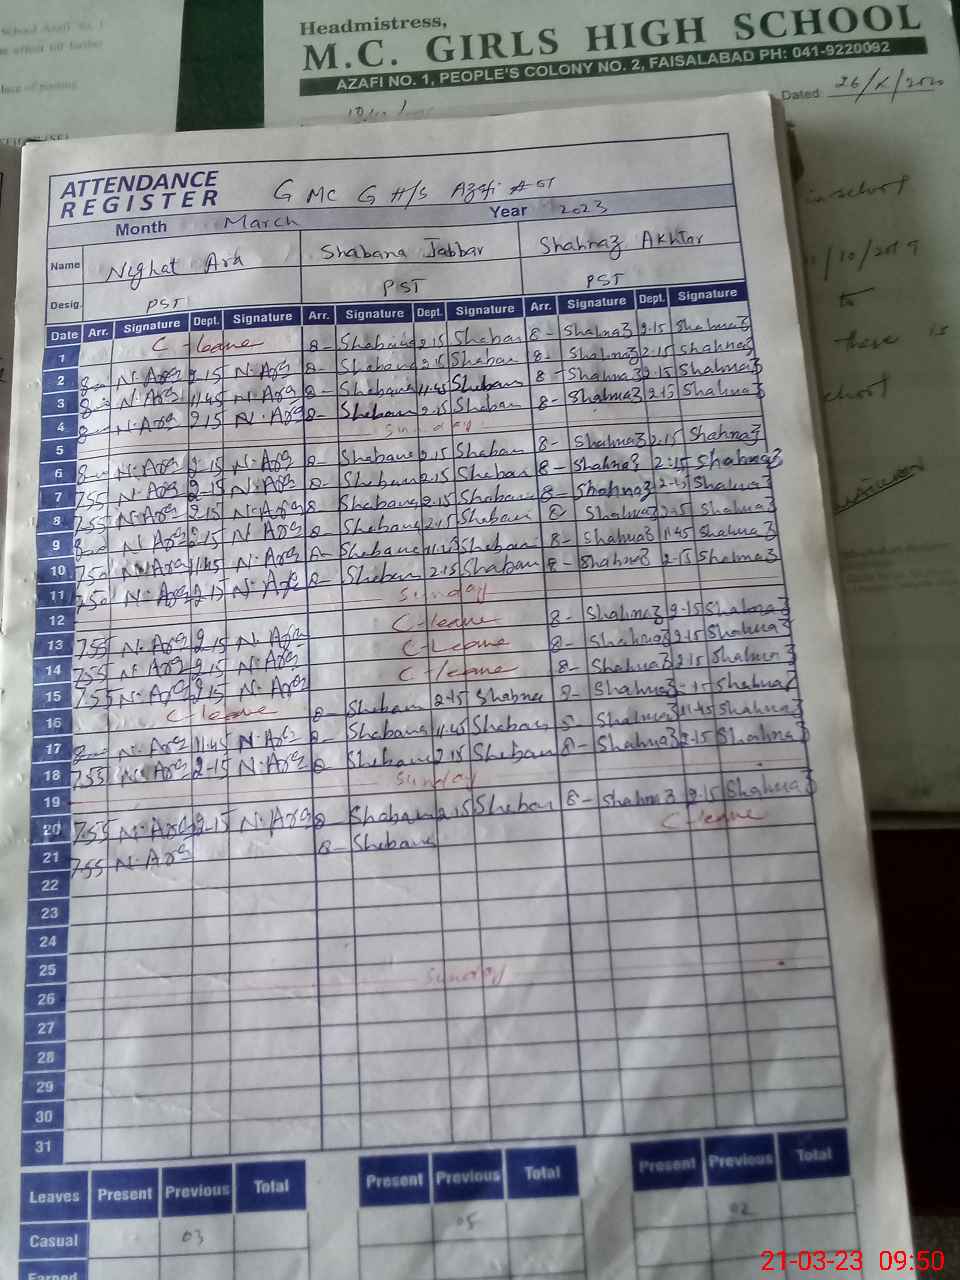 School Azafi No. 1
effect till further
lace of posting
Headmistress,
M.C. GIRLS HIGH SCHOOL
AZAFI NO. 1, PEOPLE'S COLONY NO. 2, FAISALABAD PH: 041-9220092
Dated:
in school
/10/2019
to
these is
ATTENDANCE REGISTER G MC G H/S Azafi
Month March Year 2023
Name Nighat Ara Shabana Jabbar Shahnaz Akhtar
Desig. PST PST PST
Date Arr. Signature Dept. Signature Arr. Signature Dept. Signature Arr. Signature Dept. Signature
1 C-leave 8- Shabana 2.15 Shaban 8- Shahnaz 2.15 Shahnaz
2 8- N.Ara 2.15 N.Ara 8- Shabana 2.15 Shaban 8- Shahnaz 2.15 Shahnaz
3 8- N.Ara 11.45 N.Ara 8- Shabana 11.45 Sheban 8- Shahnaz 2.15 Shahnaz
4 8- N.Ara 2.15 N.Ara 8- Sheban 2.15 Sheban 8- Shahnaz 2.15 Shahnaz
5 Sunday
6 8- N.Ara 2.15 N.Ara 8- Shebana 2.15 Sheban 8- Shahnaz 2.15 Shahnaz
7 7.55 N.Ara 2.15 N.Ara 8- Sheban 2.15 Sheban 8- Shahnaz 2.15 Shahnaz
8 7.55 N.Ara 2.15 N.Ara 8 Shebana 2.15 Shaban 8- Shahnaz 2.15 Shahnaz
9 8- N.Ara 2.15 N.Ara 8- Shabana 2.15 Sheban 8 Shahnaz 2.15 Shahnaz
10 7.50 N.Ara 11.45 N.Ara 8- Shebana 11.45 Sheban 8- Shahnaz 11.45 Shahnaz
11 7.50 N.Ara 2.15 N.Ara 8- Sheban 2.15 Shaban 8- Shahnaz 2.15 Shahnaz
12 Sunday
13 7.55 N.Ara 2.15 N.Ara C-leave 8- Shahnaz 2.15 Shahnaz
14 7.55 N.Ara 2.15 N.Ara C-Leave 8- Shahnaz 2.15 Shahnaz
15 7.55 N.Ara 2.15 N.Ara C-leave 8- Shahnaz 2.15 Shahnaz
16 C-leave 8- Sheban 2.15 Shabnee 8- Shahnaz 2.15 Shahnaz
17 8- N.Ara 11.45 N.Ara 8- Shebana 11.45 Sheban 8- Shahnaz 11.45 Shahnaz
18 7.55 N.Ara 2.15 N.Ara 8 Sheban 2.15 Sheban 8- Shahnaz 2.15 Shahnaz
19 Sunday
20 7.55 N.Ara 2.15 N.Ara 8- Shabana 2.15 Sheban 8- Shahnaz 2.15 Shahnaz
21 7.55 N.Ara 8- Shebana C-leave
22
23
24
25
26 Sunday
27
28
29
30
31
Leaves Present Previous Total Present Previous Total Present Previous Total
Casual 03 05 02
Earned
21-03-23 09:50